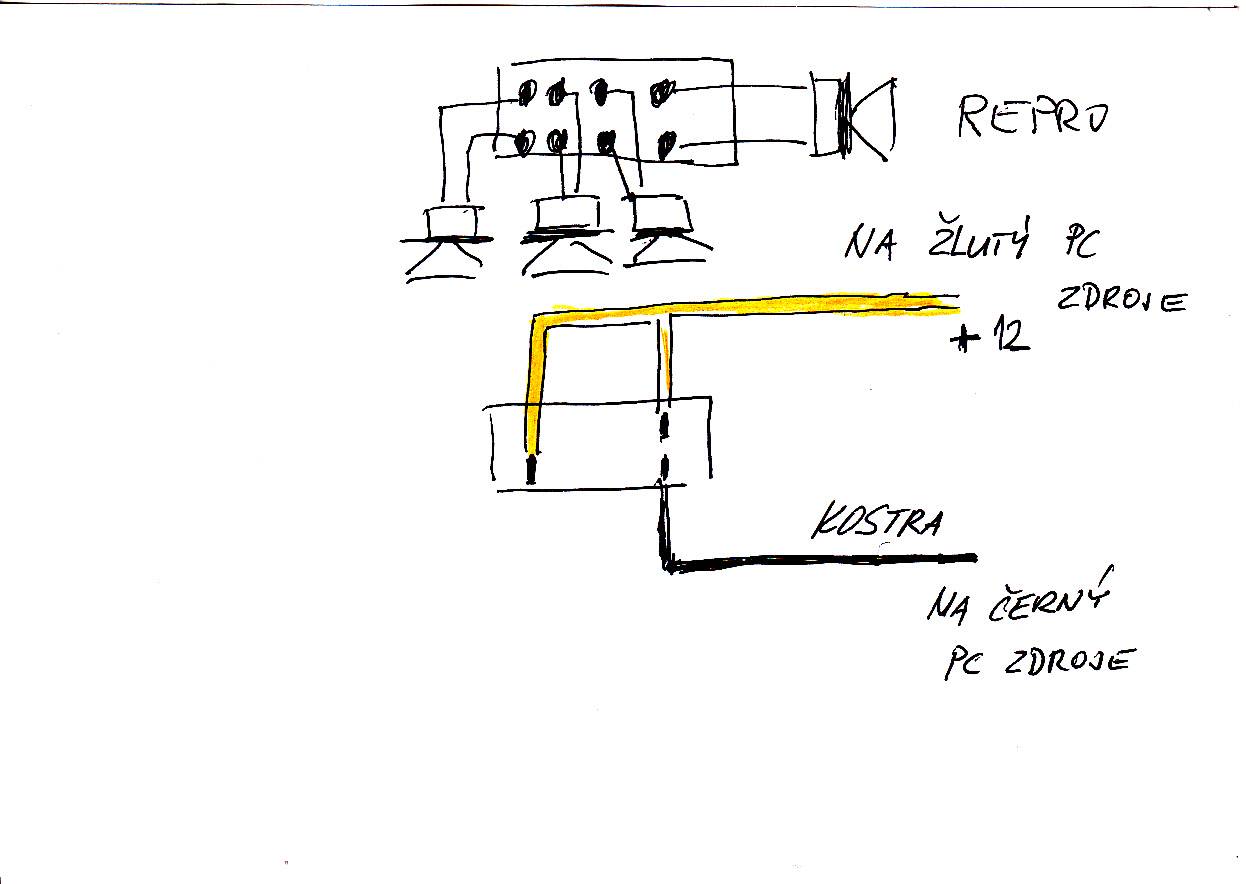 REPRO
NA ŽLUTÝ PC
ZDROJE
+12
KOSTRA
NA ČERNÝ
PC ZDROJE